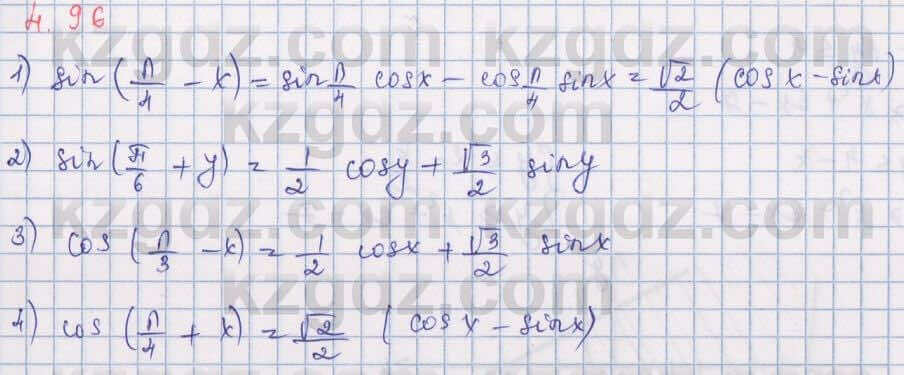 4.96
1) sin(π/4 - x) = sin π/4 cosx - cos π/4 sinx = √2/2 (cosx - sinx)
2) sin(π/6 + y) = 1/2 cosy + √3/2 siny
3) cos(π/3 - x) = 1/2 cosx + √3/2 sinx
4) cos(π/4 + x) = √2/2 (cosx - sinx)
kzgdz.com kzgdz.com
kzgdz.com
kzgdz.com kzgdz.com
kzgdz.com